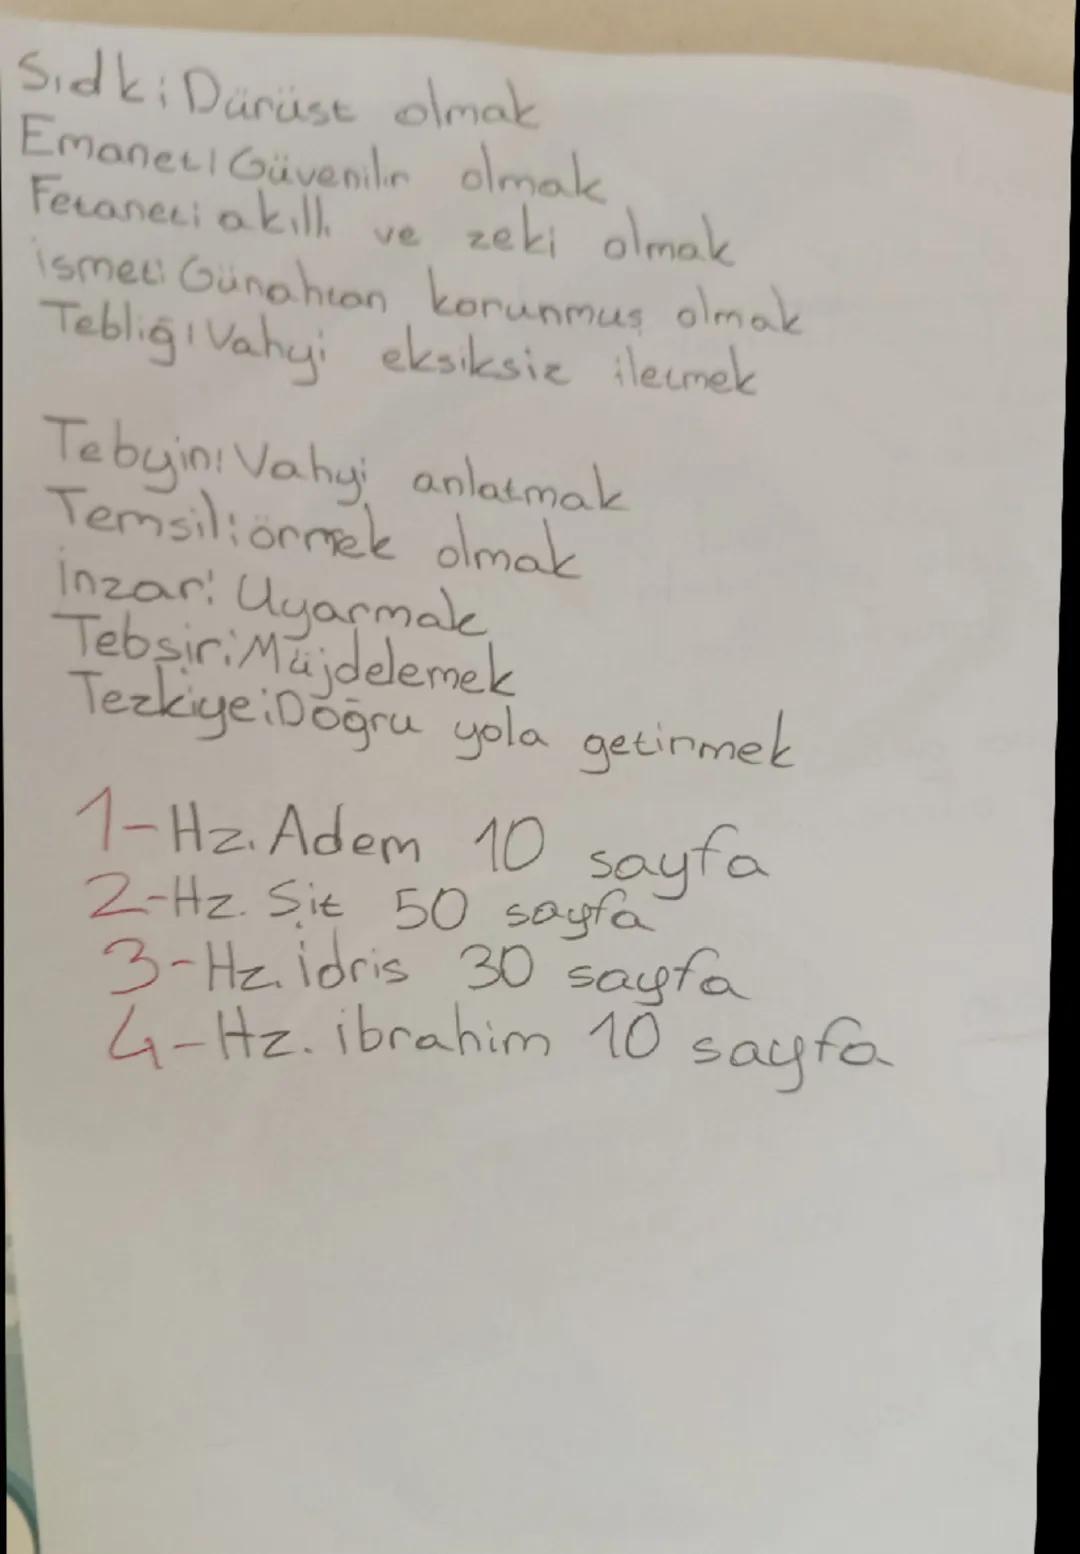 Sıdk: Dürüst olmak
Emanet: Güvenilir olmak
Fetanet: akıllı ve zeki olmak
ismet: Günahtan korunmuş olmak
Tebliğ: Vahyi eksiksiz iletmek
Tebyin: Vahyi anlatmak
Temsil: örnek olmak
İnzar: Uyarmak
Tebşir: Müjdelemek
Tezkiye: Doğru yola getirmek
1-Hz. Adem 10 sayfa
2-Hz. Şit 50 sayfa
3-Hz. İdris 30 sayfa
4-Hz. ibrahim 10 sayfa